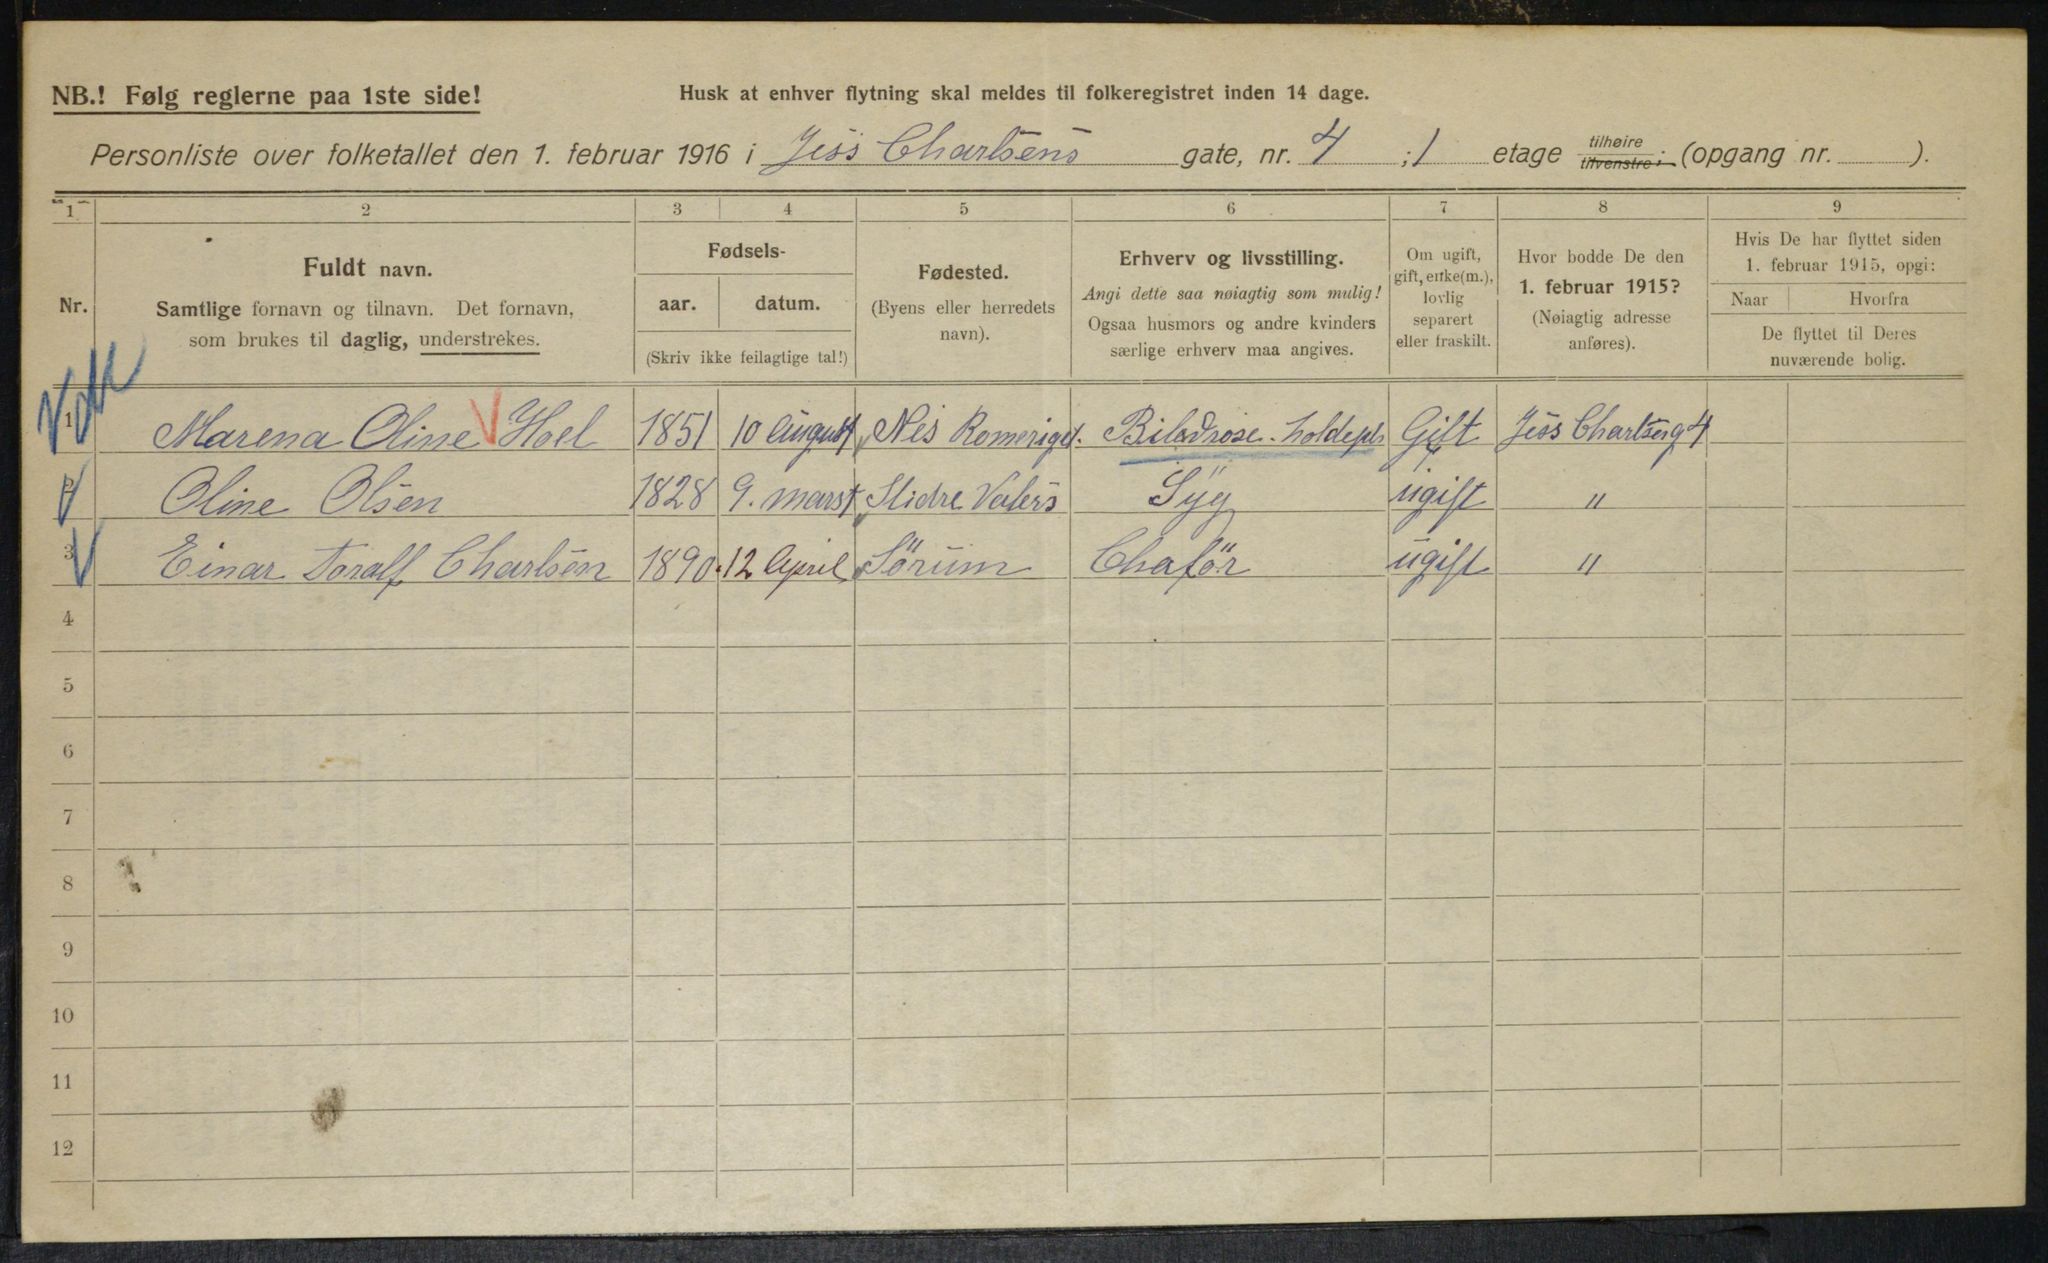 NB.! Følg reglerne paa 1ste side!
Husk at enhver flytning skal meldes til folkeregistret inden 14 dage.
Personliste over folketallet den 1. februar 1916 i Jess Charlsens gate, nr. 4 ; 1 etage tilhøire tilvenstre; (opgang nr. ).
1 2 3 4 5 6 7 8 9
Nr.
Fuldt navn.
Samtlige fornavn og tilnavn. Det fornavn,
som brukes til daglig, understrekes.
Fødsels-
aar. datum.
(Skriv ikke feilagtige tal!)
Fødested.
(Byens eller herredets
navn).
Erhverv og livsstilling.
Angi dette saa nøiagtig som mulig!
Ogsaa husmors og andre kvinders
særlige erhverv maa angives.
Om ugift,
gift, enke(m.),
lovlig
separert
eller fraskilt.
Hvor bodde De den
1. februar 1915?
(Nøiagtig adresse
anføres).
Hvis De har flyttet siden
1. februar 1915, opgi:
Naar Hvorfra
De flyttet til Deres
nuværende bolig.
1 Marena Oline Hoel 1851 10 August Nes Gift Jess Charlseg 4
2 Oline Olsen 1828 9. marst Slidre Valers Syg ugift "
3 Einar Toralf Charlsen 1890 12 April Sørum Chafør ugift "
4
5
6
7
8
9
10
11
12